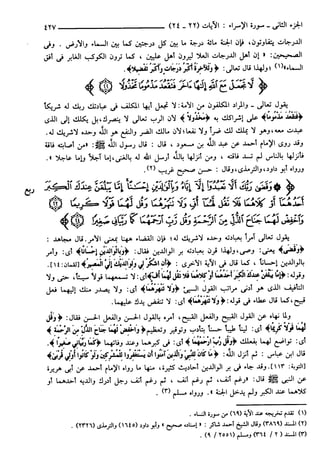 الجزء الثاني - سورة الإسراء : الآيات (٢٢ - ٢٤) ٤٢٧
الدرجات يتفاوتون، فإن الجنة مائة درجة ما بين كل درجتين كما بين السماء والأرض . وفي
الصحيحين: « إن أهل الدرجات العلا ليرون أهل عليين ، كما ترون الكوكب الغابر في أفق
السماء»(١) ولهذا قال تعالى: ﴿وللآخرة أكبر درجات وأكبر تفضيلا﴾.
﴿لا تجعل مع الله إلها آخر فتقعد مذموما مخذولا﴾
يقول تعالى - والمراد المكلفون من الأمة: لا تجعل أيها المكلف في عبادتك ربك له شريكاً
﴿فتقعد مذموما﴾ على إشراكك به ﴿مخذولا﴾ لأن الرب تعالى لا ينصرك، بل يكلك إلى الذي
عبدت معه، وهو لا يملك لك ضراً ولا نفعاً؛ لأن مالك الضر والنفع هو الله وحده لا شريك له.
وقد روى الإمام أحمد عن عبد الله بن مسعود ، قال : قال رسول الله ﷺ: «من أصابته فاقة
فأنزلها بالناس لم تسد فاقته ، ومن أنزلها بالله أرسل الله له بالغنى، إما آجلاً وإما عاجلاً ».
ورواه أبو داود، والترمذي، وقال : حسن صحيح غريب (٢).
﴿وقضى ربك ألا تعبدوا إلا إياه وبالوالدين إحسانا إما يبلغن عندك الكبر أحدهما أو كلاهما فلا تقل لهما أف ولا تنهرهما وقل لهما قولا كريما
واخفض لهما جناح الذل من الرحمة وقل رب ارحمهما كما ربياني صغيرا﴾
يقول تعالى آمراً بعبادته وحده لا شريك له؛ فإن القضاء ههنا بمعنى الأمر. قال مجاهد :
﴿وقضى﴾ يعني: وصى، ولهذا قرن بعبادته بر الوالدين فقال: ﴿وبالوالدين إحسانا﴾ أي: وأمر
بالوالدين إحساناً ، كما قال في الآية الأخرى : ﴿أن اشكر لي ولوالديك إلي المصير﴾ [لقمان: ١٤].
وقوله: ﴿إما يبلغن عندك الكبر أحدهما أو كلاهما فلا تقل لهما أف﴾ أي: لا تسمعهما قولاً سيئاً، حتى ولا
التأفيف الذي هو أدنى مراتب القول السيئ ﴿ولا تنهرهما﴾ أي: ولا يصدر منك إليهما فعل
قبيح، كما قال عطاء في قوله: ﴿ولا تنهرهما﴾ أي: لا تنفض يدك عليهما.
ولما نهاه عن القول القبيح والفعل القبيح، أمره بالقول الحسن والفعل الحسن فقال: ﴿وقل
لهما قولا كريما﴾ أي: ليناً طيباً حسناً بتأدب وتوقير وتعظيم ﴿واخفض لهما جناح الذل من الرحمة﴾
أي: تواضع لهما بفعلك ﴿وقل رب ارحمهما﴾ أي: في كبرهما وعند وفاتهما ﴿كما ربياني صغيرا﴾.
قال ابن عباس : ثم أنزل الله: ﴿ما كان للنبي والذين آمنوا أن يستغفروا للمشركين ولو كانوا أولي قربى﴾
[التوبة: ١١٣]. وقد جاء في بر الوالدين أحاديث كثيرة، منها ما رواه الإمام أحمد عن أبي هريرة
عن النبي ﷺ قال: «رغم أنف، ثم رغم أنف ، ثم رغم أنف رجل أدرك والديه أحدهما أو
كلاهما عند الكبر ولم يدخل الجنة ». ورواه مسلم (٣) .
(١) تقدم تخريجه عند الآية (٦٩) من سورة النساء .
(٢) المسند (٣٨٦٩) وقال الشيخ أحمد شاكر : « إسناده صحيح » وأبو داود (١٦٤٥) والترمذي (٢٣٢٦) .
(٣) المسند (٢ / ٣٤٦) ومسلم (٢٥٥١ / ٩) .
ربع